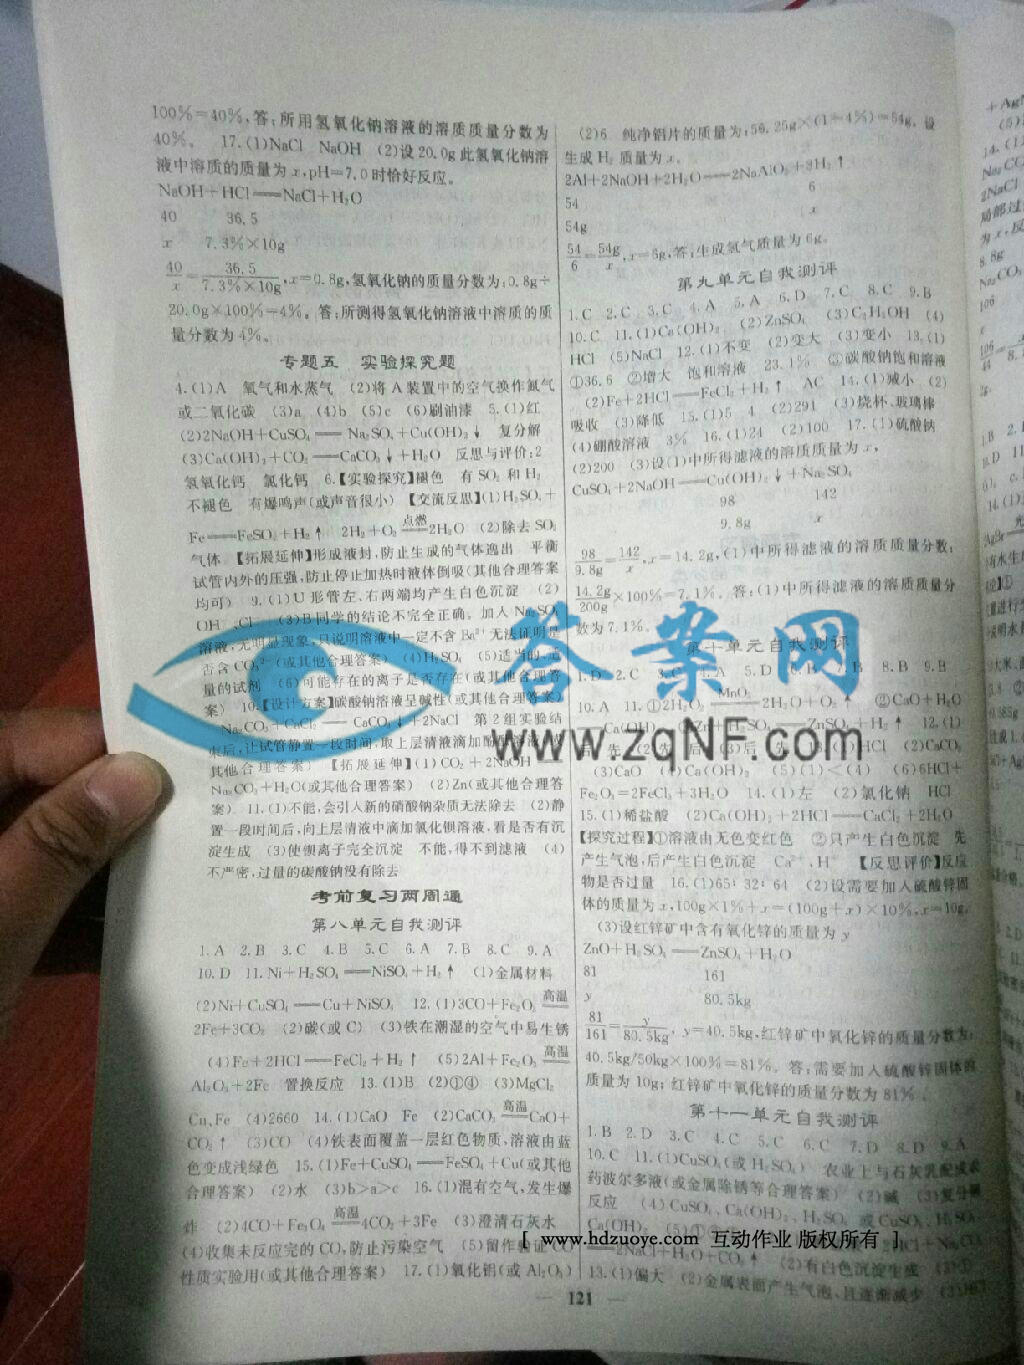 100%=40%,答:所用氢氧化钠溶液的溶质质量分数为
40%。 17.(1)NaCl NaOH (2)设20.0g此氢氧化钠溶
液中溶质的质量为x,pH=7.0时恰好反应。
NaOH+HCl══NaCl+H₂O
40 36.5
x 7.3%×10g
40/x=36.5/7.3%×10g,x=0.8g,氢氧化钠的质量分数为:0.8g÷
20.0g×100%=4%。答:所测得氢氧化钠溶液中溶质的质
量分数为4%。
专题五 实验探究题
4.(1)A 氧气和水蒸气 (2)将A装置中的空气换作氮气
或二氧化碳 (3)a (4)b (5)c (6)刷油漆 5.(1)红
(2)2NaOH+CuSO₄══Na₂SO₄+Cu(OH)₂↓ 复分解
(3)Ca(OH)₂+CO₂══CaCO₃↓+H₂O 反思与评价:2
氢氧化钙 氯化钙 6.【实验探究】褪色 有SO₂和H₂
不褪色 有爆鸣声(或声音很小) 【交流反思】(1)H₂SO₄+
Fe══FeSO₄+H₂↑ 2H₂+O₂点燃══2H₂O (2)除去SO₂
气体 【拓展延伸】形成液封,防止生成的气体逸出 平衡
试管内外的压强,防止停止加热时液体倒吸(其他合理答案
均可) 9.(1)U形管左、右两端均产生白色沉淀 (2)
OH⁻、Cl⁻ (3)B同学的结论不完全正确。加入Na₂SO₄
溶液,无明显现象,只说明溶液中一定不含Ba²⁺ 无法证明是
否含CO₃²⁻(或其他合理答案) (4)H₂SO₄ (5)适当的、适
量的试剂 (6)可能存在的离子是否存在(或其他合理答
案) 10.【设计方案】碳酸钠溶液呈碱性(或其他合理答案)
Na₂CO₃+CaCl₂══CaCO₃↓+2NaCl 第2组实验结
束后,让试管静置一段时间,取上层清液滴加
其他合理答案) 【拓展延伸】(1)CO₂+2NaOH══
Na₂CO₃+H₂O(或其他合理答案) (2)Zn(或其他合理答
案) 11.(1)不能,会引入新的硝酸钠杂质无法除去 (2)静
置一段时间后,向上层清液中滴加氯化钡溶液,看是否有沉
淀生成 (3)使钡离子完全沉淀 不能,得不到滤液 (4)
不严密,过量的碳酸钠没有除去
考前复习两周通
第八单元自我测评
1.A 2.B 3.C 4.B 5.C 6.A 7.B 8.C 9.A
10.D 11.Ni+H₂SO₄══NiSO₄+H₂↑ (1)金属材料
(2)Ni+CuSO₄══Cu+NiSO₄ 12.(1)3CO+Fe₂O₃高温══
2Fe+3CO₂ (2)碳(或C) (3)铁在潮湿的空气中易生锈
(4)Fe+2HCl══FeCl₂+H₂↑ (5)2Al+Fe₂O₃高温══
Al₂O₃+2Fe 置换反应 13.(1)B (2)①④ (3)MgCl₂
Cu、Fe (4)2660 14.(1)CaO Fe (2)CaCO₃高温══CaO+
CO₂↑ (3)CO (4)铁表面覆盖一层红色物质,溶液由蓝
色变成浅绿色 15.(1)Fe+CuSO₄══FeSO₄+Cu(或其他
合理答案) (2)水 (3)b>a>c 16.(1)混有空气,发生爆
炸 (2)4CO+Fe₃O₄高温══4CO₂+3Fe (3)澄清石灰水
(4)收集未反应完的CO,防止污染空气 (5)留作验证CO
性质实验用(或其他合理答案) 17.(1)氧化铝(或Al₂O₃)
(2)6 纯净铝片的质量为:56.25g×(1-4%)=54g。设
生成H₂质量为x。
2Al+2NaOH+2H₂O══2NaAlO₂+3H₂↑
54 6
54g x
54/6=54g/x,x=6g,答:生成氢气质量为6g。
第九单元自我测评
1.C 2.C 3.C 4.A 5.A 6.D 7.C 8.C 9.B
10.C 11.(1)Ca(OH)₂ (2)ZnSO₄ (3)C₂H₅OH (4)
HCl (5)NaCl 12.(1)不变 (2)变大 (3)变小 13.(1)
①36.6 ②增大 饱和溶液 23.1% ③碳酸钠饱和溶液
(2)Fe+2HCl══FeCl₂+H₂↑ AC 14.(1)减小 (2)
吸收 (3)降低 15.(1)5 4 (2)291 (3)烧杯、玻璃棒
(4)硼酸溶液 3% 16.(1)24 (2)100 17.(1)硫酸钠
(2)200 (3)设(1)中所得滤液的溶质质量为x,
CuSO₄+2NaOH══Cu(OH)₂↓+Na₂SO₄
98 142
9.8g x
98/9.8g=142/x,x=14.2g,(1)中所得滤液的溶质质量分数:
14.2g/200g×100%=7.1%。答:(1)中所得滤液的溶质质量分
数为7.1%。
第十单元自我测评
1.D 2.C 4.A 5.D 8.B 9.B
10.A 11.①2H₂O₂MnO₂══2H₂O+O₂↑ ②CaO+H₂O
══Ca(OH)₂ H₂SO₄══ZnSO₄+H₂↑ 12.(1)
HCl (2)CaCO₃
(3)CaO (4)Ca(OH)₂ (5)(1)<(4) (6)6HCl+
Fe₂O₃=2FeCl₃+3H₂O 14.(1)左 (2)氯化钠 HCl
15.(1)稀盐酸 (2)Ca(OH)₂+2HCl══CaCl₂+2H₂O
【探究过程】①溶液由无色变红色 ②只产生白色沉淀 先
产生气泡,后产生白色沉淀 Ca²⁺、H⁺ 【反思评价】反应
物是否过量 16.(1)65:32:64 (2)设需要加入硫酸锌固
体的质量为x,100g×1%+x=(100g+x)×10%,x=10g。
(3)设红锌矿中含有氧化锌的质量为y
ZnO+H₂SO₄══ZnSO₄+H₂O
81 161
y 80.5kg
81/161=y/80.5kg,y=40.5kg,红锌矿中氧化锌的质量分数为:
40.5kg/50kg×100%=81%。答:需要加入硫酸锌固体的
质量为10g;红锌矿中氧化锌的质量分数为81%。
第十一单元自我测评
1.B 2.D 3.C 4.C 5.C 6.C 7.D 8.D 9.A
10.C 11.(1)CuSO₄(或H₂SO₄) 农业上与石灰乳配成农
药波尔多液(或金属除锈等合理答案) (2)碱 (3)复分解
反应 (4)CuSO₄、Ca(OH)₂、H₂SO₄或CuSO₄、H₂SO₄
Ca(OH)₂
══2NaCl+H₂O+CO₂↑ (2)有白色沉淀生成
13.(1)偏大 (2)金属表面产生气泡,且逐渐减少
121
答案网
www.zqNF.com
[ www.hdzuoye.com 互动作业 版权所有 ]